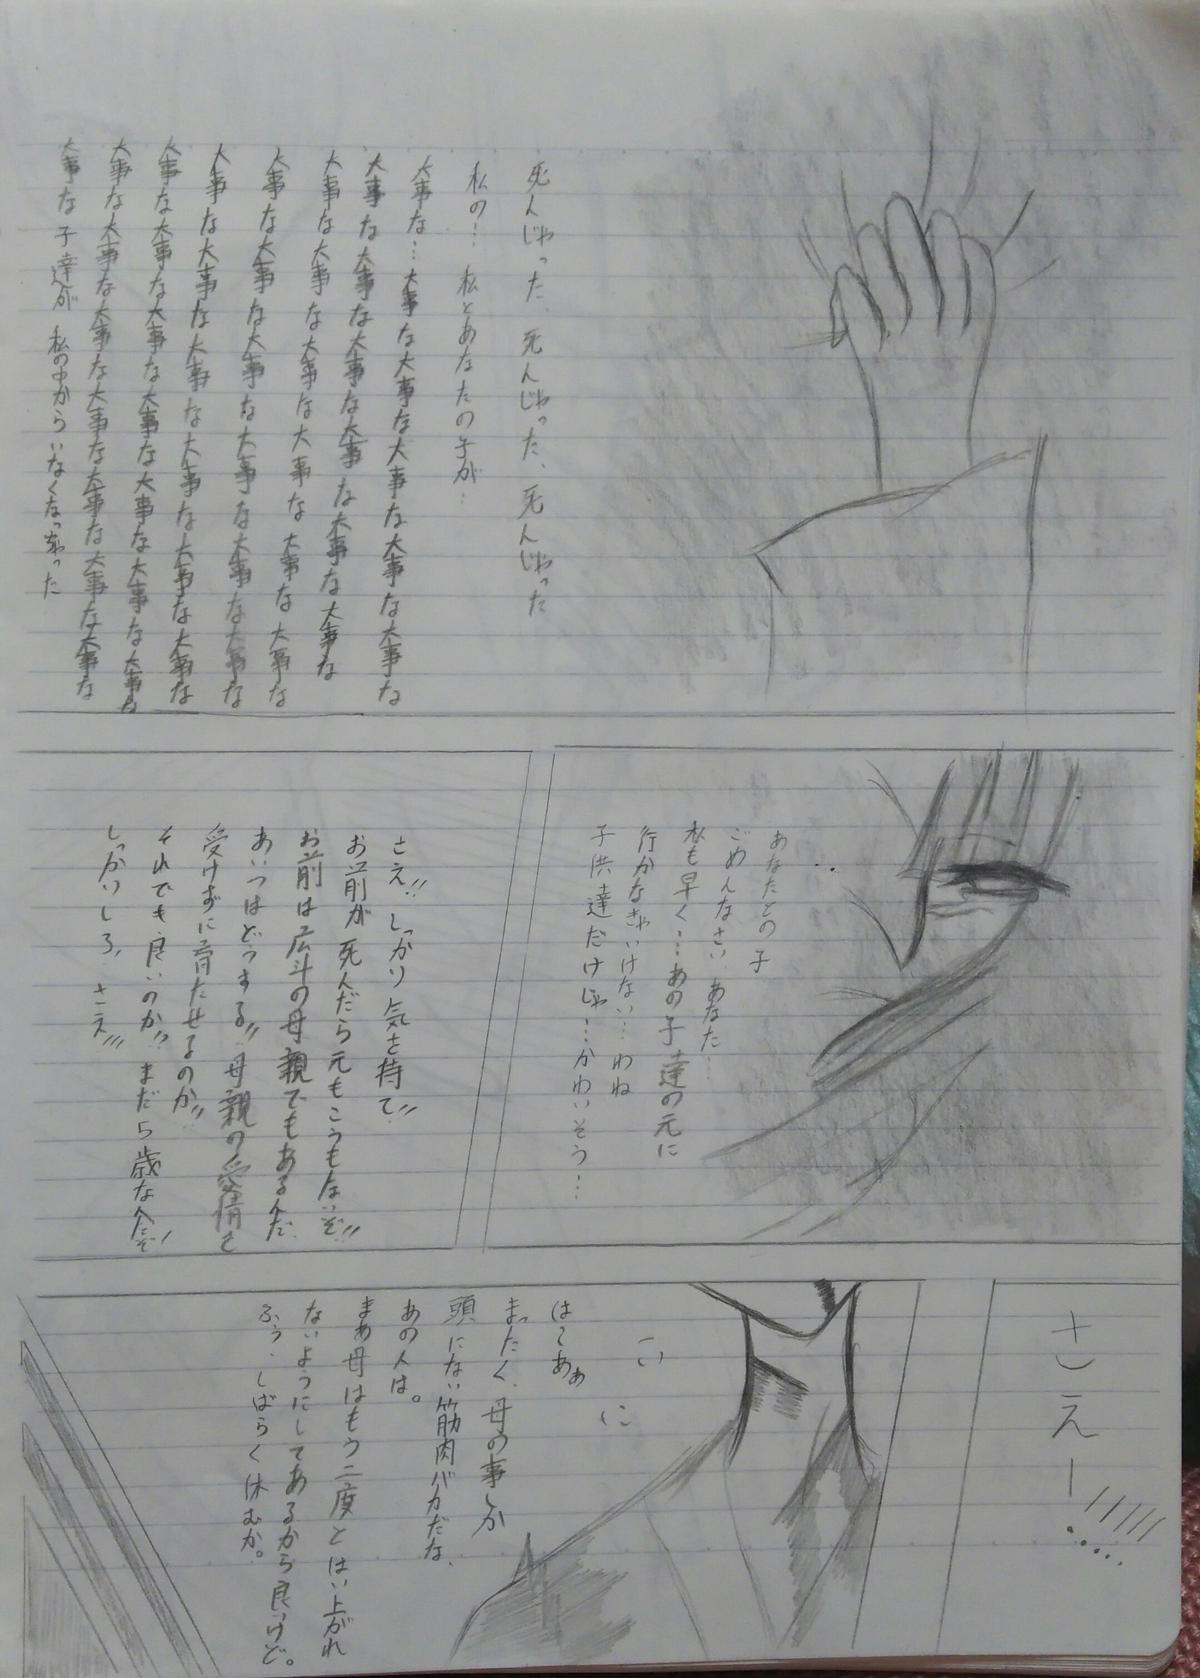 死んじゃった、死んじゃった、死んじゃった
私の…私とあなたの子が…
大事な…大事な大事な大事な大事な大事な
大事な大事な大事な大事な大事な大事な
大事な大事な大事な大事な大事な大事な
大事な大事な大事な大事な大事な大事な
大事な大事な大事な大事な大事な大事な
大事な大事な大事な大事な大事な大事な
大事な大事な大事な大事な大事な大事な大事な
大事な子達が私の中からいなくなっちゃった
あなたとの子
ごめんなさい、あなた…
私も早く…あの子達の元に
行かなきゃいけない…わね
子供達だけじゃ…かわいそう…
さえ!!しっかり気を持て!!
お前が死んだら元もこうもないぞ!!
お前は広斗の母親でもあるんだ
あいつはどうする!!母親の愛情を
受けずに育たせるのか!!
それでも良いのか!?まだ5歳なんだぞ!
しっかりしろ、さえ!!!
さえー!!!!!
はぁあぁ
まったく、母の事しか
頭にない筋肉バカだな、
あの人は。
まあ母はもう二度とはい上がれ
ないようにしてあるから良いけど。
ふぅ、しばらく休むか。